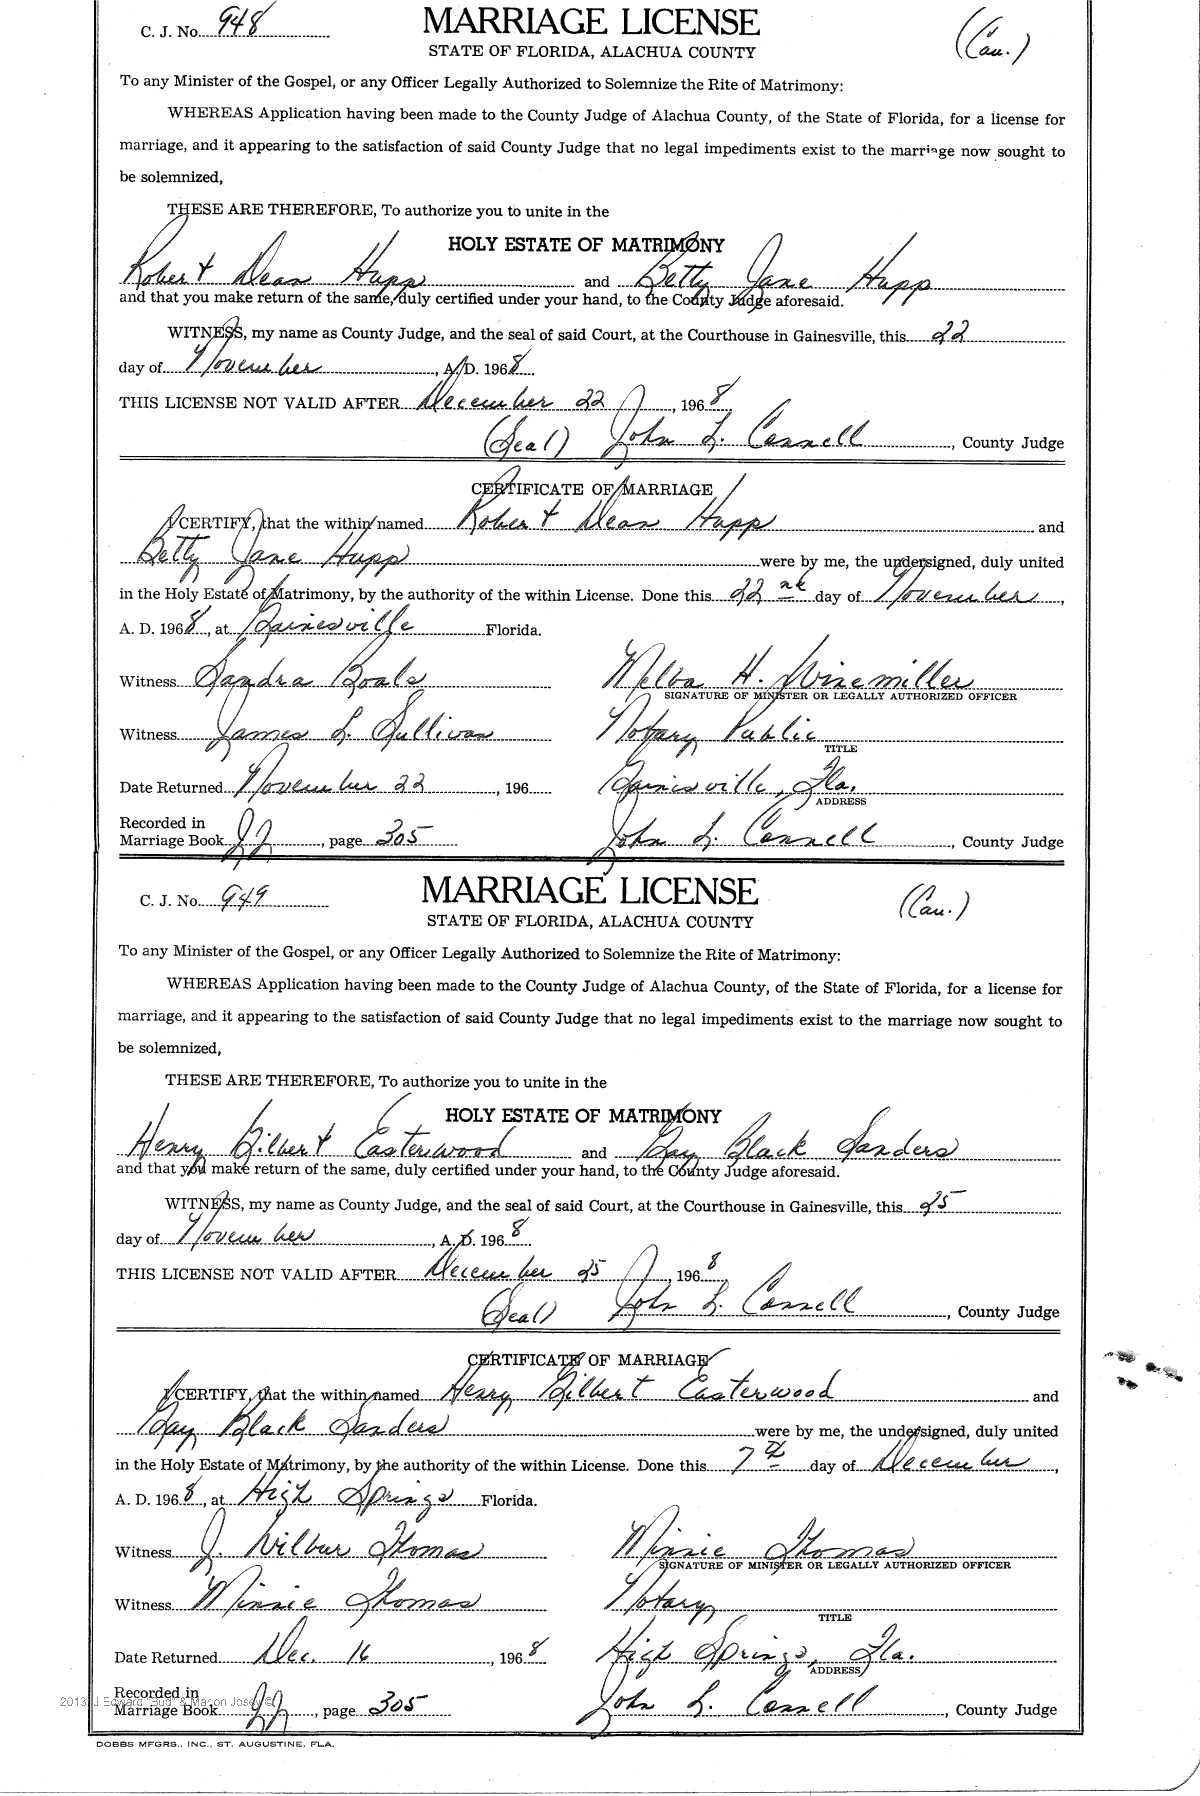 C. J. No. 948 MARRIAGE LICENSE (Cau.)
STATE OF FLORIDA, ALACHUA COUNTY
To any Minister of the Gospel, or any Officer Legally Authorized to Solemnize the Rite of Matrimony:
WHEREAS Application having been made to the County Judge of Alachua County, of the State of Florida, for a license for
marriage, and it appearing to the satisfaction of said County Judge that no legal impediments exist to the marriage now sought to
be solemnized,
THESE ARE THEREFORE, To authorize you to unite in the
HOLY ESTATE OF MATRIMONY
Robert Dean Hupp and Betty Jane Hupp
and that you make return of the same, duly certified under your hand, to the County Judge aforesaid.
WITNESS, my name as County Judge, and the seal of said Court, at the Courthouse in Gainesville, this 22
day of November, A. D. 1968
THIS LICENSE NOT VALID AFTER December 22, 1968
(Seal) John L. Connell, County Judge
CERTIFICATE OF MARRIAGE
I CERTIFY, that the within named Robert Dean Hupp and
Betty Jane Hupp were by me, the undersigned, duly united
in the Holy Estate of Matrimony, by the authority of the within License. Done this 22nd day of November,
A. D. 1968, at Gainesville Florida.
Witness Sandra Boals Melba H. Winemiller
SIGNATURE OF MINISTER OR LEGALLY AUTHORIZED OFFICER
Witness James L. Sullivan Notary Public
TITLE
Date Returned November 22, 196 Gainesville, Fla.
ADDRESS
Recorded in
Marriage Book JJ, page 305 John L. Connell, County Judge
C. J. No. 949 MARRIAGE LICENSE (Cau.)
STATE OF FLORIDA, ALACHUA COUNTY
To any Minister of the Gospel, or any Officer Legally Authorized to Solemnize the Rite of Matrimony:
WHEREAS Application having been made to the County Judge of Alachua County, of the State of Florida, for a license for
marriage, and it appearing to the satisfaction of said County Judge that no legal impediments exist to the marriage now sought to
be solemnized,
THESE ARE THEREFORE, To authorize you to unite in the
HOLY ESTATE OF MATRIMONY
Henry Gilbert Easterwood and Gay Black Sanders
and that you make return of the same, duly certified under your hand, to the County Judge aforesaid.
WITNESS, my name as County Judge, and the seal of said Court, at the Courthouse in Gainesville, this 25
day of November, A. D. 1968
THIS LICENSE NOT VALID AFTER December 25, 1968
(Seal) John L. Connell, County Judge
CERTIFICATE OF MARRIAGE
I CERTIFY, that the within named Henry Gilbert Easterwood and
Gay Black Sanders were by me, the undersigned, duly united
in the Holy Estate of Matrimony, by the authority of the within License. Done this 7th day of December,
A. D. 1968, at High Springs Florida.
Witness J. Wilbur Thomas Minnie Thomas
SIGNATURE OF MINISTER OR LEGALLY AUTHORIZED OFFICER
Witness Minnie Thomas Notary
TITLE
Date Returned Dec. 16, 1968 High Springs, Fla.
ADDRESS
2013 J Edward "Bud" & Marion Josey ©
Recorded in
Marriage Book JJ, page 305 John L. Connell, County Judge
DOBBS MFGRS., INC., ST. AUGUSTINE, FLA.